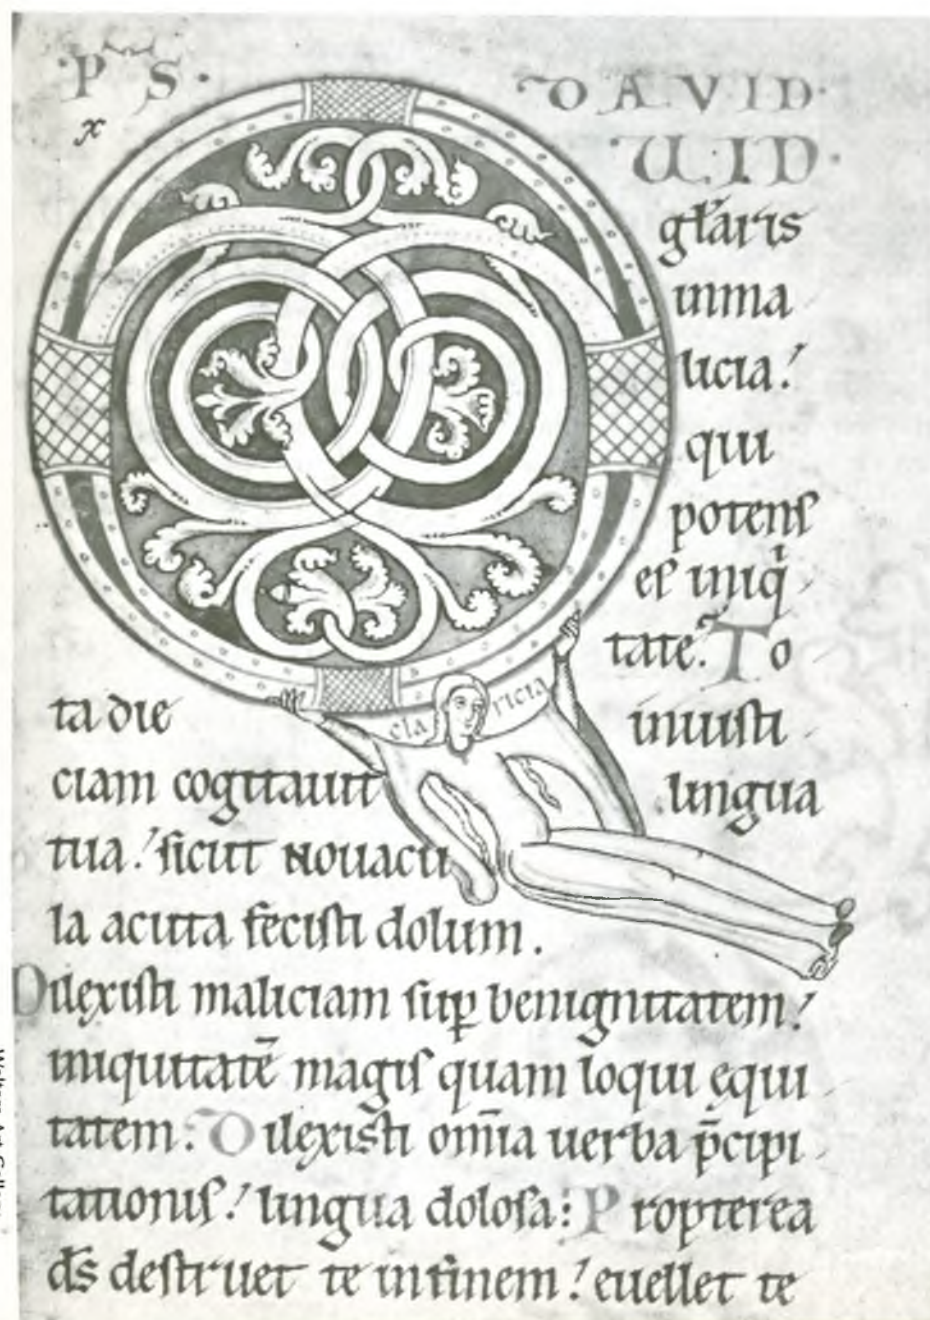 ·P S· DAVID·
x UID·
gl̄aris
inma
licia!
qui
potens
es iniq̇
tate? To
ta die iniusti
cla ricia
ciam cogitauit lingua
tua! sicut nouacu
la acuta fecisti dolum.
Dilexisti maliciam sup̱ benignitatem!
iniquitatē magis quam loqui equi
tatem: Dilexisti om̄ia uerba p̄cipi
tationis! lingua dolosa: Propterea
d̄s destruet te infinem! euellet te